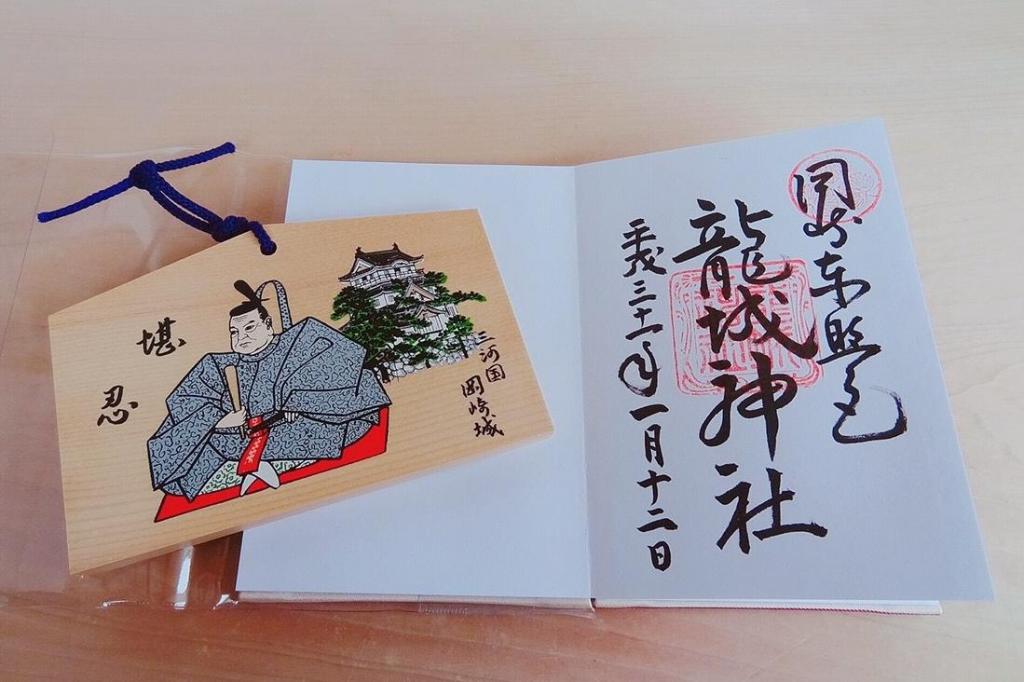 岡崎東照宮
龍城神社
平成三十一年一月十二日
三河国
岡崎城
堪忍